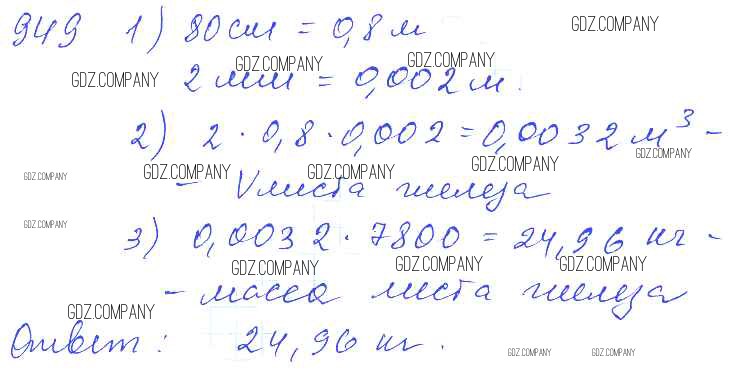 949 1) 80 см = 0,8 м GDZ.COMPANY
GDZ.COMPANY GDZ.COMPANY GDZ.COMPANY
2 мм = 0,002 м.
2) 2 · 0,8 · 0,002 = 0,0032 м³ –
GDZ.COMPANY GDZ.COMPANY GDZ.COMPANY GDZ.COMPANY GDZ.COMPANY
– V листа железа
GDZ.COMPANY
3) 0,0032 · 7800 = 24,96 кг –
GDZ.COMPANY GDZ.COMPANY GDZ.COMPANY
– масса листа железа
GDZ.COMPANY
Ответ: 24,96 кг.
GDZ.COMPANY GDZ.COMPANY